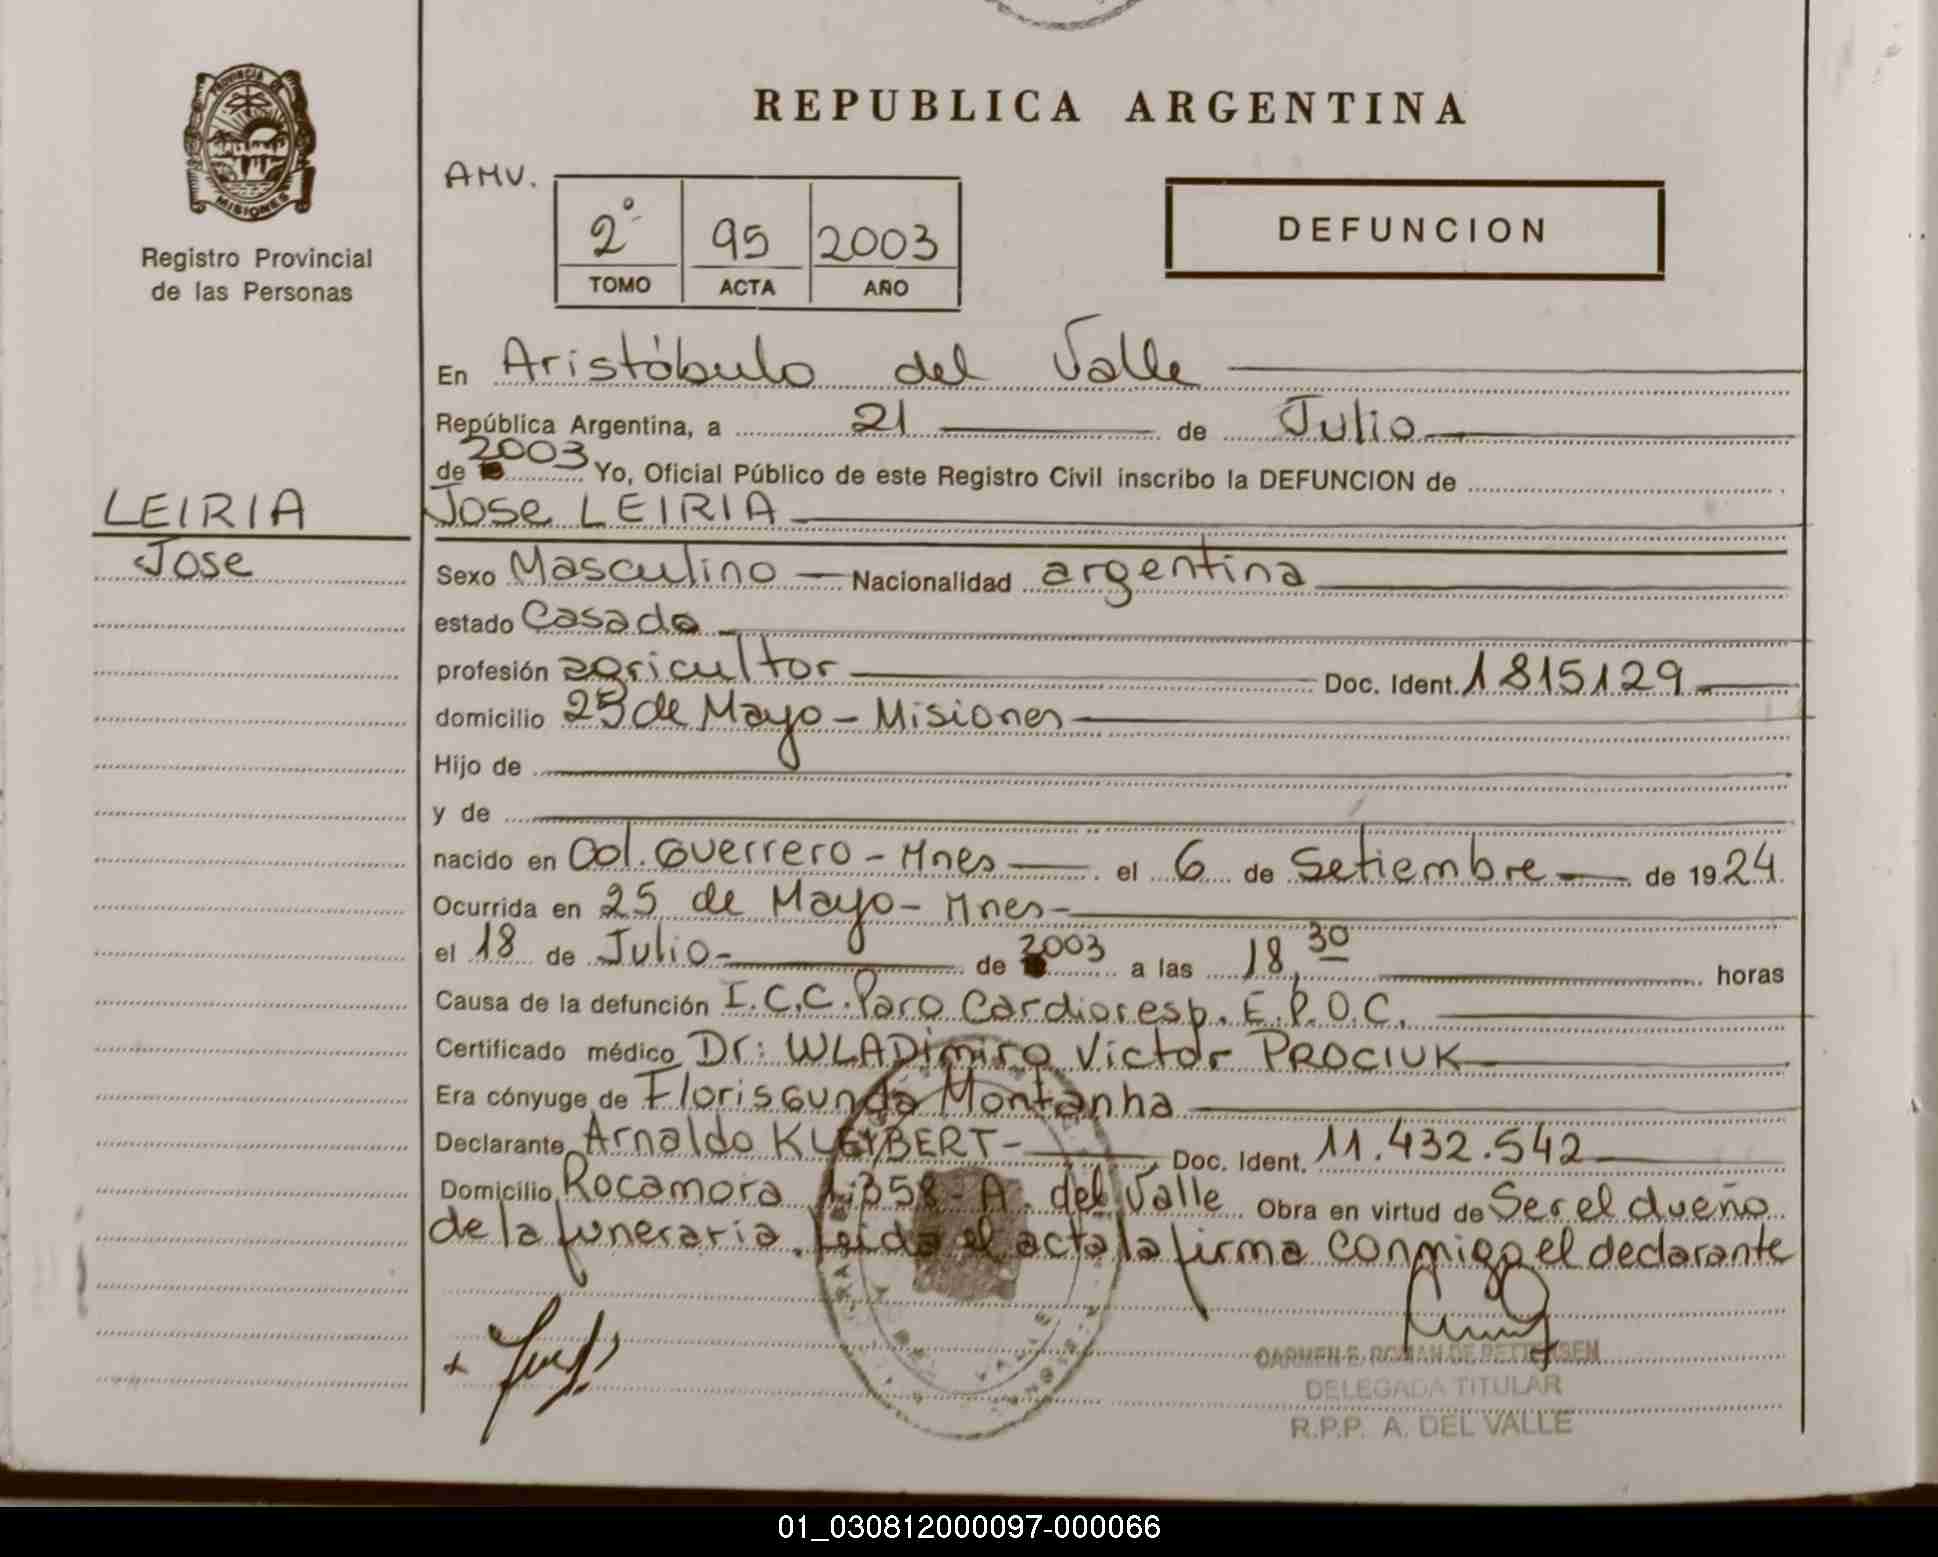 REPUBLICA ARGENTINA
PROVINCIA DE
MISIONES
Registro Provincial
de las Personas
AMV.
2º 95 2003
TOMO ACTA AÑO
DEFUNCION
En Aristóbulo del Valle
República Argentina, a 21 de Julio
de 2003 Yo, Oficial Público de este Registro Civil inscribo la DEFUNCION de
LEIRIA
Jose
Jose LEIRIA
Sexo Masculino Nacionalidad argentina
estado Casado
profesión agricultor Doc. Ident. 1815129
domicilio 25 de Mayo - Misiones
Hijo de
y de
nacido en Col. Guerrero - Mnes el 6 de Setiembre de 1924
Ocurrida en 25 de Mayo - Mnes -
el 18 de Julio - de 2003 a las 18,30 horas
Causa de la defunción I.C.C. Paro Cardioresp. E.P.O.C.
Certificado médico Dr: WLADimiro Victor PROCIUK
Era cónyuge de Florisgunda Montanha
Declarante Arnaldo KLEIBERT - Doc. Ident. 11.432.542
Domicilio Rocamora 1.358 - A. del Valle Obra en virtud de Ser el dueño
de la funeraria. Leida el acta la firma conmigo el declarante
CARMEN E. ROMAN DE PETTERSEN
DELEGADA TITULAR
R.P.P. A. DEL VALLE
01_030812000097-000066